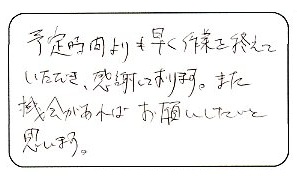 予定時間よりも早く作業を終えて
いただき、感謝しております。また
機会があれば お願いしたいと
思います。